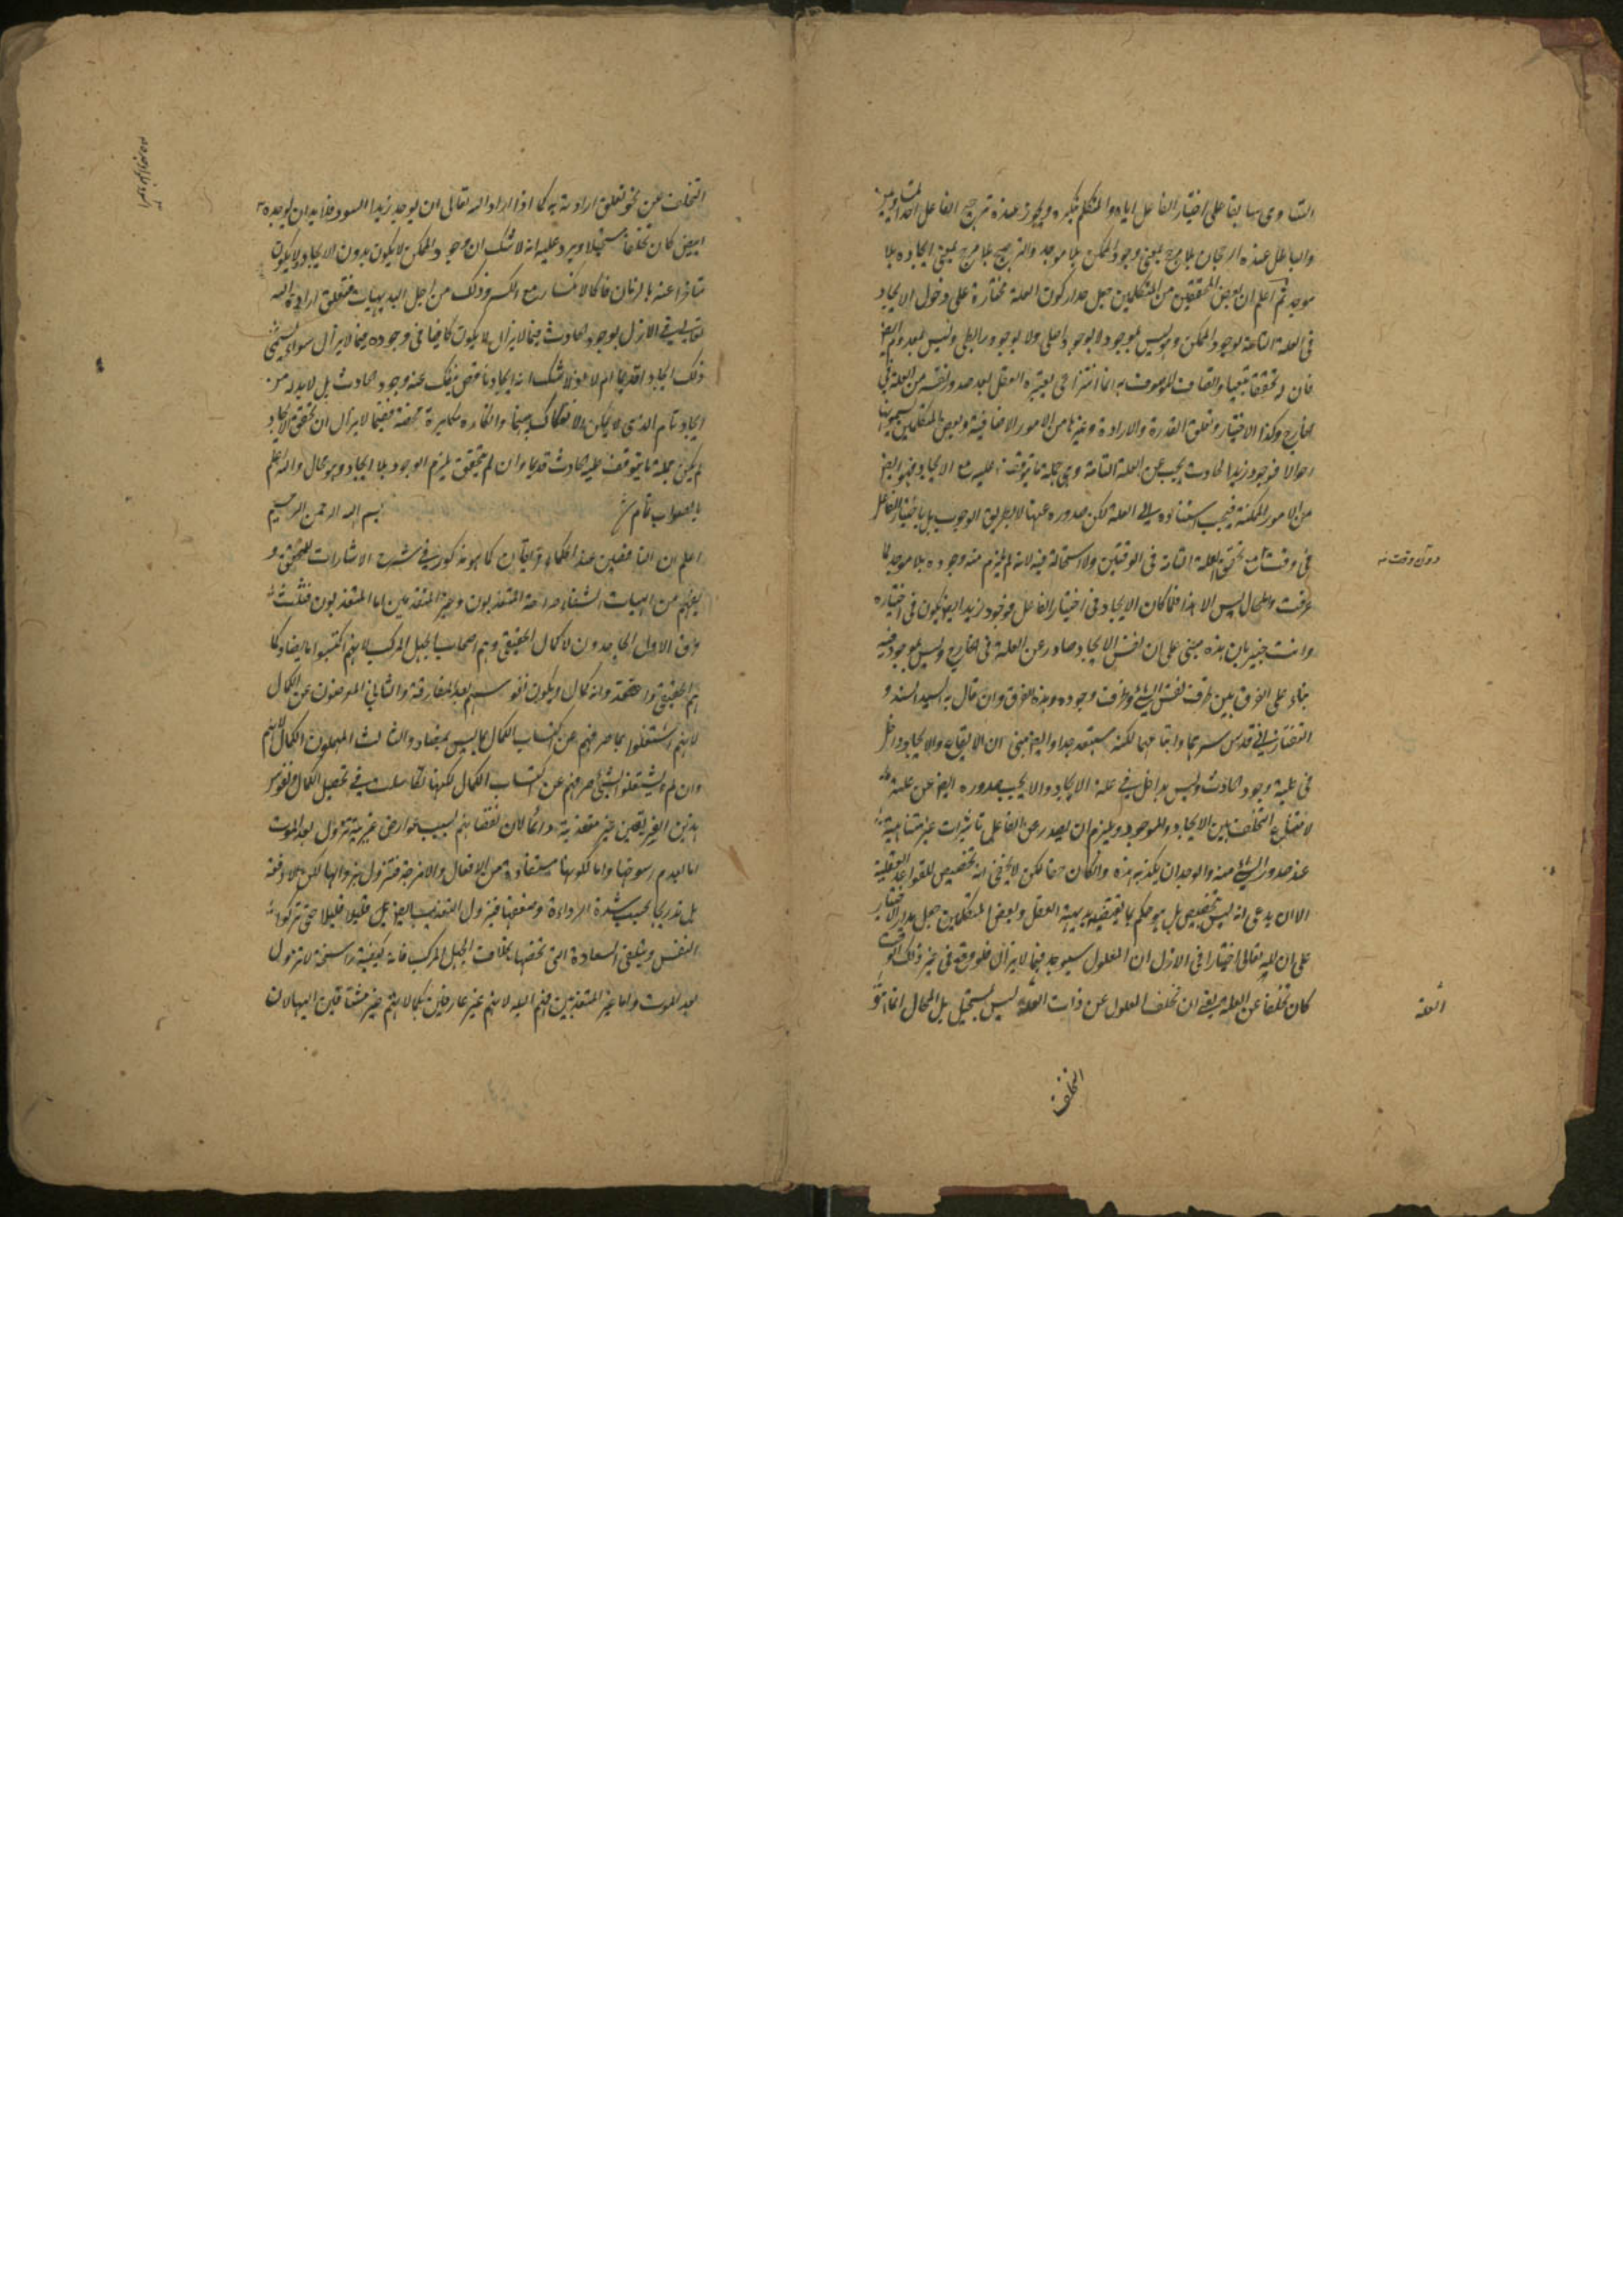 التساوى سابقا على اختيار الفاعل اياه والمتكلم ينكره ويجوز عنده ترجيح الفاعل احد المتساويين
والباطل عنده الرجحان بلا مرجح بمعنى وجود الممكن بلا موجد والترجيح بلا مرجح بمعنى ايجاده بلا
موجد ثم اعلم ان بعض المحققين من المتكلمين جعل مدار كون العلة مختارة على دخول الايجاد
فى العلة التامة لوجود الممكن وليس بموجود لا بوجود اصلى ولا بوجود رابطى وليس بمعدوم ايضا
فان له تحققا تبعيا واتصاف الموصوف به انما انتزاعى يعتبره العقل بعد صدور نفسه من العلة فى
الخارج وكذا الاختيار وتعلق القدرة والارادة وغيرها من الامور الاضافية وبعض المتكلمين يسميها
احوالا فوجود زيد الحادث يجب عن العلة التامة وهى جملة ما يتوقف عليه مع الايجاد فهو ايضا
من الامور الممكنة فيجب استناده الى العلة لكن صدوره عنها لا بطريق الوجوب بل باختيار الفاعل
فى وقت مع تحقق العلة التامة فى الوقتين ولا استحالة فيه لانه لم يلزم منه وجوده بلا موجد لما
عرفت والمحال ليس الا هذا فلما كان الايجاد فى اختيار الفاعل فوجود زيد ايضا يكون فى اختياره
وانت خبير بان هذه مبنى على ان نفس الايجاد صادر عن العلة فى الخارج وليس بموجود فيه
بناء على الفرق بين ظرف نفس الشئ وظرف وجوده وهذا الفرق وان قال به السيد السند و
التفتازانى قدس سرهما واتباعهما لكنه مستبعد جدا وايضا مبنى ان الايقاع والايجاد داخل
فى علية وجود الحادث وليس بداخل فى علة الايجاد والا يجب صدوره ايضا عن علته
لامتناع التخلف بين الايجاد والموجود ويلزم ان يصدر عن الفاعل تاثيرات غير متناهية
عند صدور الشئ منه والوجدان يكذبه هذه وان كان حقا لكن لا يخفى انه تخصيص للقواعد العقلية
الا ان يدعى انه ليس بتخصيص بل هو حكم بما يقتضيه بديهة العقل وبعض المتكلمين جعل مدار الاختيار
على ان لله تعالى اختيارا فى الازل ان المعلول سيوجد فيما لا يزال فلو وقع فى غير ذلك الوقت
كان تخلفا عن العلة يعنى ان تخلف المعلول عن ذات العلة ليس بمستحيل بل المحال انما هو
التخلف
دون وقت
التخلف عن نحو تعلق ارادته به كما اذا اراد الله تعالى ان يوجد زيدا اسود فلا بد ان يوجده
ابيض كان تخلفا مستحيلا ويرد عليه انه لا شك ان وجود الممكن لا يكون بدون الايجاد ولا يكون
متاخرا عنه بالزمان فانه كالانكسار مع الكسر وذلك من اجل البديهيات فتعلق ارادة الله
تعالى فى الازل بوجود الحادث فيما لا يزال لا يكون كافيا فى وجوده فيما لا يزال سواء يسمى
ذلك ايجادا قديما ام لا اذ لا شك انه ايجاد ناقص ينفك عنه وجود الحادث بل لا بد له من
ايجاد تام الذى لا يمكن الانفكاك بينهما وانكاره مكابرة محضة ففيما لا يزال ان تحقق الايجاد
لم يكن جملة ما يتوقف عليه الحادث قديما وان لم يتحقق يلزم الوجود بلا ايجاد وهو محال والله اعلم
بالصواب تمام بسم الله الرحمن الرحيم
اعلم ان الناقصين عند الحكماء فرقتان كما هو مذكور فى شرح الاشارات للمحقق و
يفهم من الهيات الشفاء صراحة المتعذبون وغير المتعذبين اما المتعذبون فثلث
فرق الاول الجاحدون لا كمال الحقيقى وهم اصحاب الجهل المركب لانهم اكتسبوا ما يضاد كما
لهم الحقيقى واعتقدوا انه كمال ويكون نفوسهم بعد المفارقة والثانى المعرضون عن الكمال
لانهم اشتغلوا بما صرفهم عن اكتساب الكمال مما ليس بمضاد والثالث المهملون للكمال لانهم
وان لم يشتغلوا بشئ صرفهم عن اكتساب الكمال لكنها تكاسلت فى تحصيل الكمال ونفوس
هذين الفريقين غير متعذبة دائما لان نقصانهم بسبب عوارض غريبة تزول بعد الموت
اما لعدم رسوخها واما لكونها مستفادة من الافعال والامزجة فتزول بزوالها لكن لا دفعة
بل تدريجا بحسب شدة الرداءة وضعفها فيزول التعذيب ايضا بل قليلا قليلا حتى تزكو
النفس وتبلغ السعادة التى تخصها بخلاف الجهل المركب فانه كيفية راسخة لا تزول
بعد الموت واما غير المتعذبين فهم البله لانهم غير عارفين بكمالاتهم غير مشتاقين اليها لان